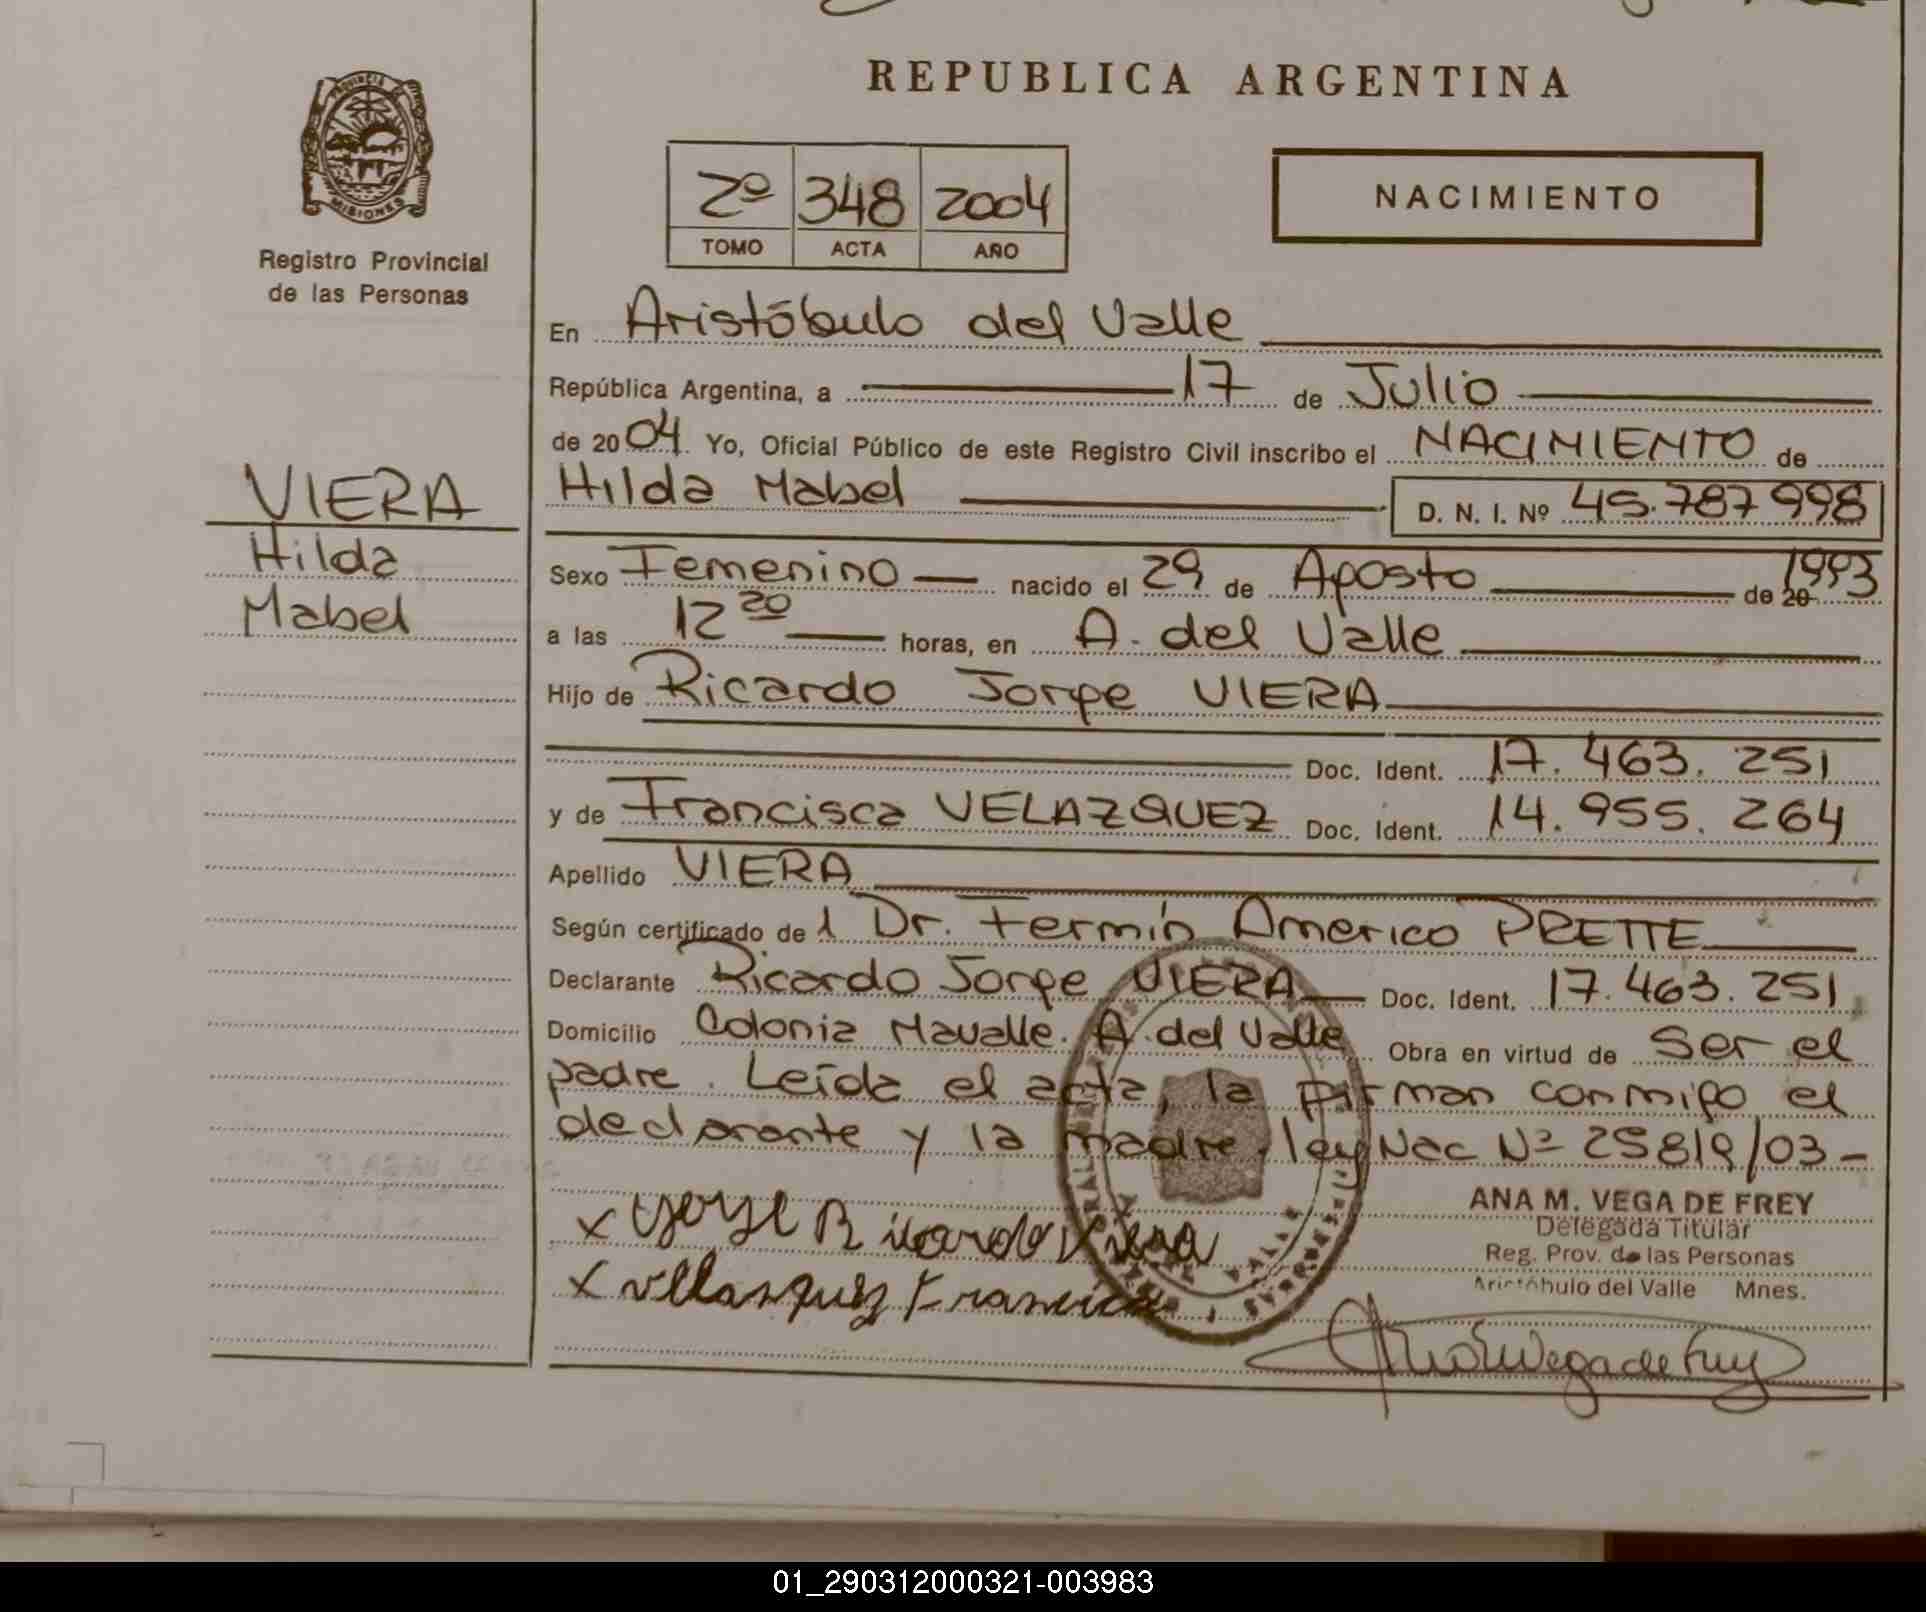 REPUBLICA ARGENTINA
PROVINCIA DE
MISIONES
Registro Provincial
de las Personas
2º 348 2004
TOMO ACTA AÑO
NACIMIENTO
VIERA
Hilda
Mabel
En Aristóbulo del Valle
República Argentina, a 17 de Julio
de 2004. Yo, Oficial Público de este Registro Civil inscribo el NACIMIENTO de
Hilda Mabel D. N. I. Nº 45.787998
Sexo Femenino nacido el 29 de Agosto de 20 1993
a las 12 20 horas, en A. del Valle
Hijo de Ricardo Jorge VIERA
Doc. Ident. 17.463.251
y de Francisca VELAZQUEZ Doc. Ident. 14.955.264
Apellido VIERA
Según certificado del Dr. Fermín Americo PRETTE
Declarante Ricardo Jorge VIERA Doc. Ident. 17.463.251
Domicilio Colonia Mavalle. A. del Valle Obra en virtud de ser el
padre. Leída el acta, la firman conmigo el
declarante y la madre. ley Nac Nº 25819/03-
x Jorge Ricardo Viera
x Vellasquez Francisca
ANA M. VEGA DE FREY
Delegada Titular
Reg. Prov. de las Personas
Aristóbulo del Valle Mnes.
01_290312000321-003983